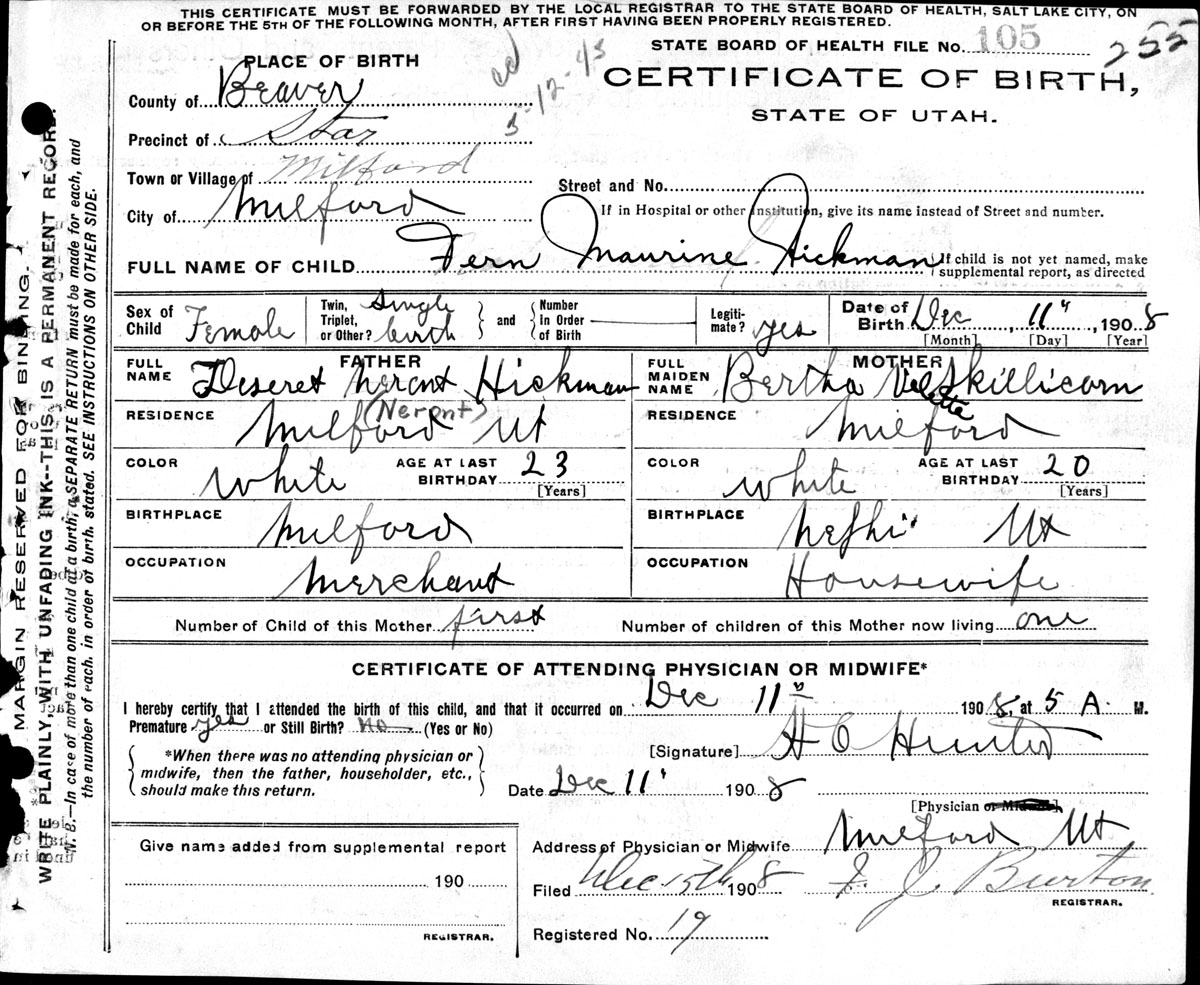 THIS CERTIFICATE MUST BE FORWARDED BY THE LOCAL REGISTRAR TO THE STATE BOARD OF HEALTH, SALT LAKE CITY, ON
OR BEFORE THE 5TH OF THE FOLLOWING MONTH, AFTER FIRST HAVING BEEN PROPERLY REGISTERED.
STATE BOARD OF HEALTH FILE No. 105 255
PLACE OF BIRTH
5-12-43
CERTIFICATE OF BIRTH,
STATE OF UTAH.
County of Beaver
Precinct of Star
Town or Village of Milford
Street and No.
City of Milford
If in Hospital or other Institution, give its name instead of Street and number.
FULL NAME OF CHILD Fern Maurine Hickman
If child is not yet named, make
supplemental report, as directed
Sex of Child Female
Twin, Triplet, or Other? Single birth
and
Number in Order of Birth
Legiti-mate? yes
Date of Birth Dec 11", 1908
[Month] [Day] [Year]
FATHER
FULL NAME Deseret Nerant Hickman
(Nerant)
MOTHER
FULL MAIDEN NAME Bertha Vilette Skillicorn
RESIDENCE Milford Ut
RESIDENCE Milford
COLOR White AGE AT LAST BIRTHDAY 23
[Years]
COLOR White AGE AT LAST BIRTHDAY 20
[Years]
BIRTHPLACE Milford
BIRTHPLACE Nephi Ut
OCCUPATION Merchant
OCCUPATION Housewife
Number of Child of this Mother first
Number of children of this Mother now living one
CERTIFICATE OF ATTENDING PHYSICIAN OR MIDWIFE*
I hereby certify that I attended the birth of this child, and that it occurred on Dec 11" 1908, at 5 A. M.
Premature yes or Still Birth? No (Yes or No)
*When there was no attending physician or
midwife, then the father, householder, etc.,
should make this return.
[Signature] H O Hunter
Date Dec 11" 1908
[Physician or Midwife]
Give name added from supplemental report
190
REGISTRAR.
Address of Physician or Midwife Milford Ut
Filed Dec 15th 1908 F. J. Burton
REGISTRAR.
Registered No. 19
MARGIN RESERVED FOR BINDING.
WRITE PLAINLY, WITH UNFADING INK--THIS IS A PERMANENT RECORD.
N. B.—In case of more than one child at a birth, a SEPARATE RETURN must be made for each, and
the number of each, in order of birth, stated. SEE INSTRUCTIONS ON OTHER SIDE.